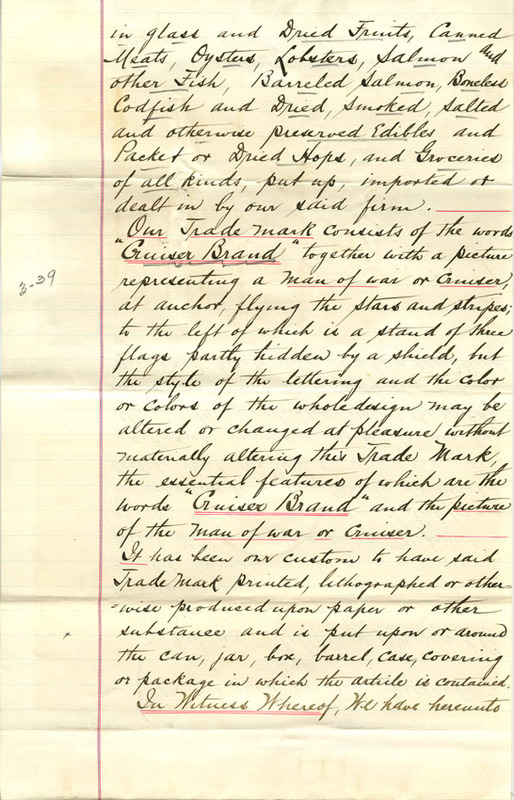 in glass and Dried Fruits, Canned
Meats, Oysters, Lobsters, Salmon and
other Fish, Barreled Salmon, Boneless
Codfish and Dried, Smoked, Salted
and otherwise preserved Edibles and
Packet or Dried Hops, and Groceries
of all kinds, put up, imported or
dealt in by our said firm.
Our Trade mark consists of the words
"Cruiser Brand" together with a picture
representing a Man of war or Cruiser,
at anchor, flying the stars and stripes;
to the left of which is a stand of three
flags partly hidden by a shield, but
the style of the lettering and the color
or colors of the whole design may be
altered or changed at pleasure without
materially altering this Trade Mark,
the essential features of which are the
words "Cruiser Brand" and the picture
of the Man of war or Cruiser.
It has been our custom to have said
Trade Mark printed, lithographed or other=
=wise produced upon paper or other
substance and is put upon or around
the can, jar, box, barrel, case, covering
or package in which the article is contained.
In Witness Whereof, We have hereunto
3-39